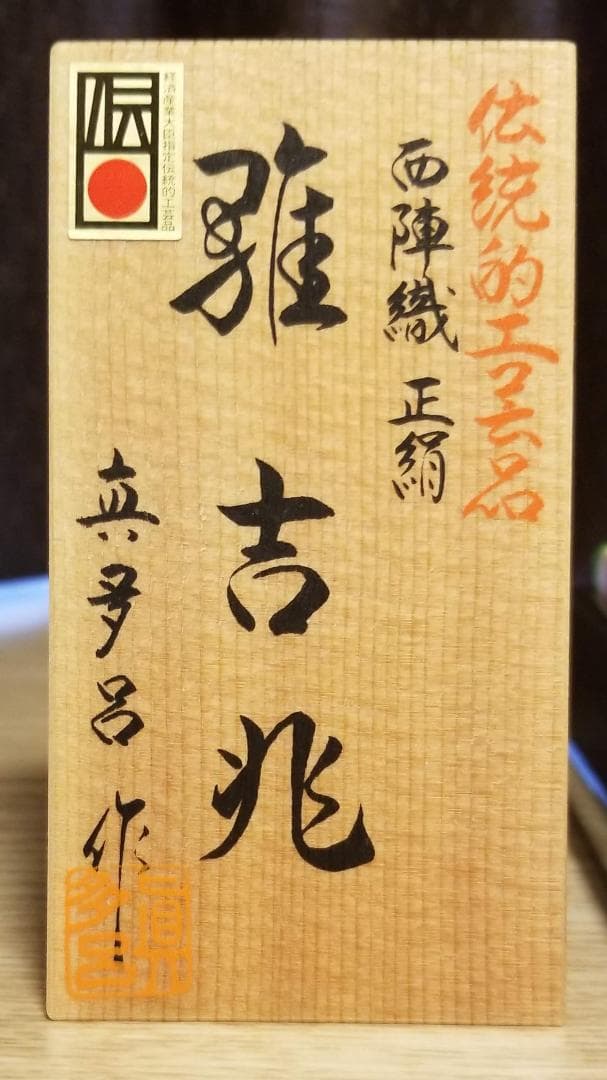 伝統的工芸品
西陣織 正絹
雅吉兆
真多呂作
眞多呂
伝
経済産業大臣指定伝統的工芸品